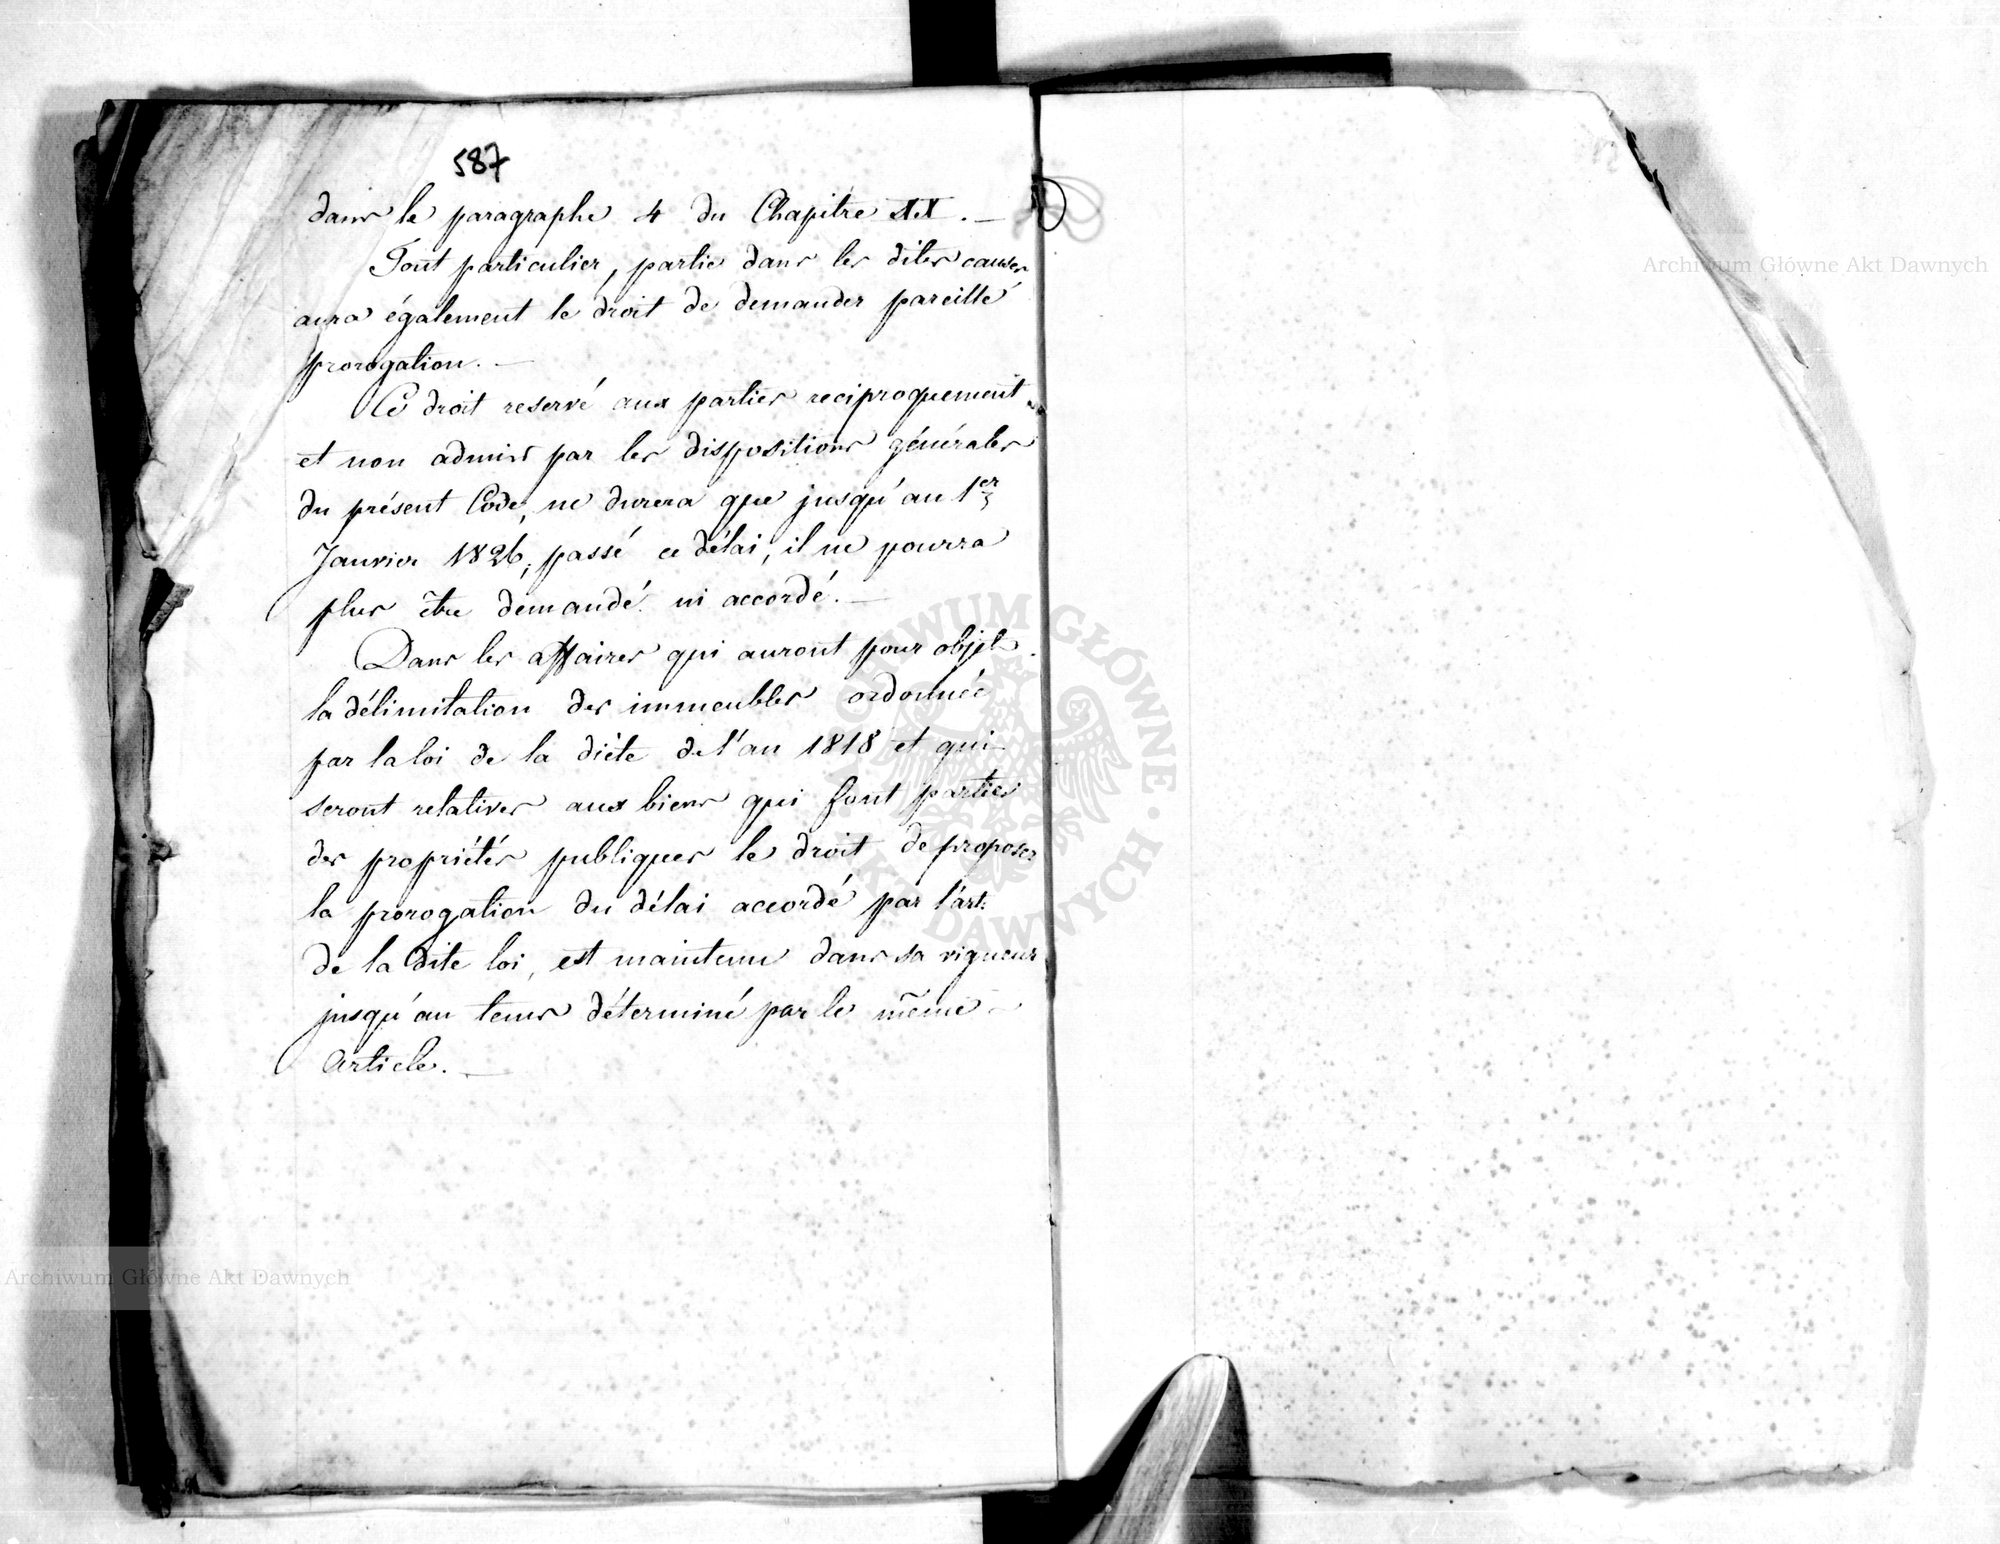 587
dans le paragraphe 4 du Chapitre XIX. —
Tout particulier, partie dans les dites causes
aura également le droit de demander pareille
prorogation. —
Ce droit reservé aux parties reciproquement
et non admis par les dispositions générales
du présent Code, ne durera que jusqu'au 1er
Janvier 1826, passé ce délai, il ne pourra
plus être demandé ni accordé. —
Dans les affaires qui auront pour objet
la délimitation des immeubles ordonnée
par la loi de la diète de l'an 1818 et qui
seront relatives aux biens qui font parties
des propriétés publiques le droit de proposer
la prorogation du délai accordé par l'art:
de la dite loi, est maintenu dans sa vigueur
jusqu'au tems déterminé par le même
article. —
Archiwum Główne Akt Dawnych
Archiwum Główne Akt Dawnych
ARCHIWUM GŁÓWNE · AKT DAWNYCH ·